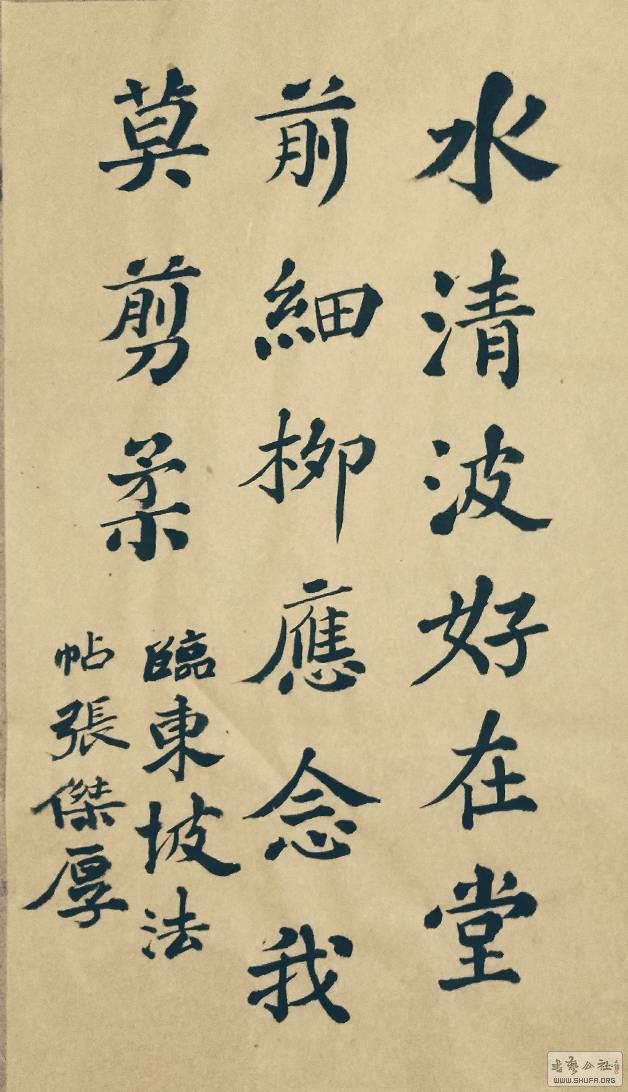 水清波好在堂
前細柳應念我
莫剪柔
臨東坡法
帖張傑厚
書藝公社
WWW.SHUFA.ORG